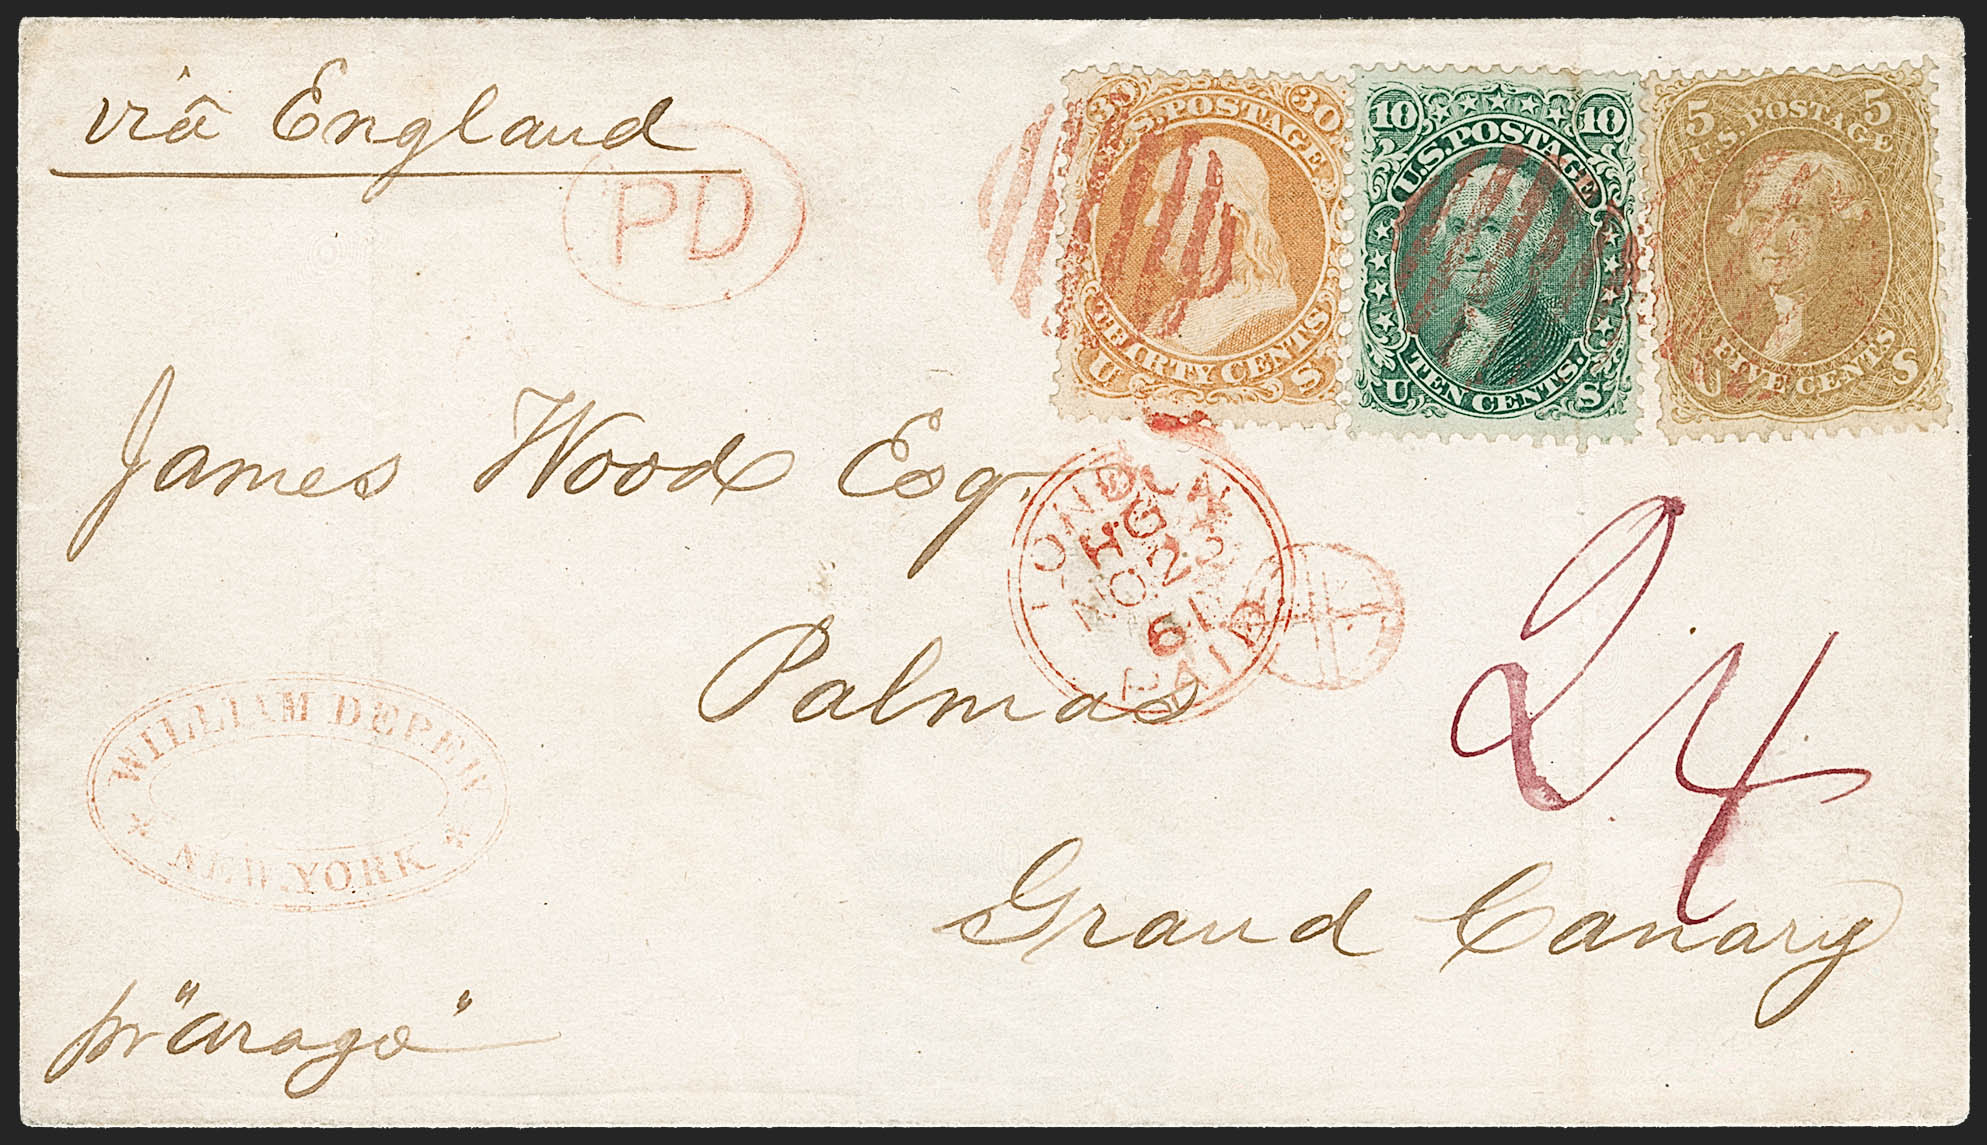 viâ England
PD
30 30
U.S. POSTAGE
THIRTY CENTS
U S
10 10
U.S. POSTAGE
TEN CENTS.
U S
5 5
U.S. POSTAGE
FIVE CENTS
U S
James Wood Esqr.
LONDON
HG
NO 22
61
PAID
Palmas
24
WILLIAM DEPEW
* NEW YORK *
Grand Canary
pr "Arago"